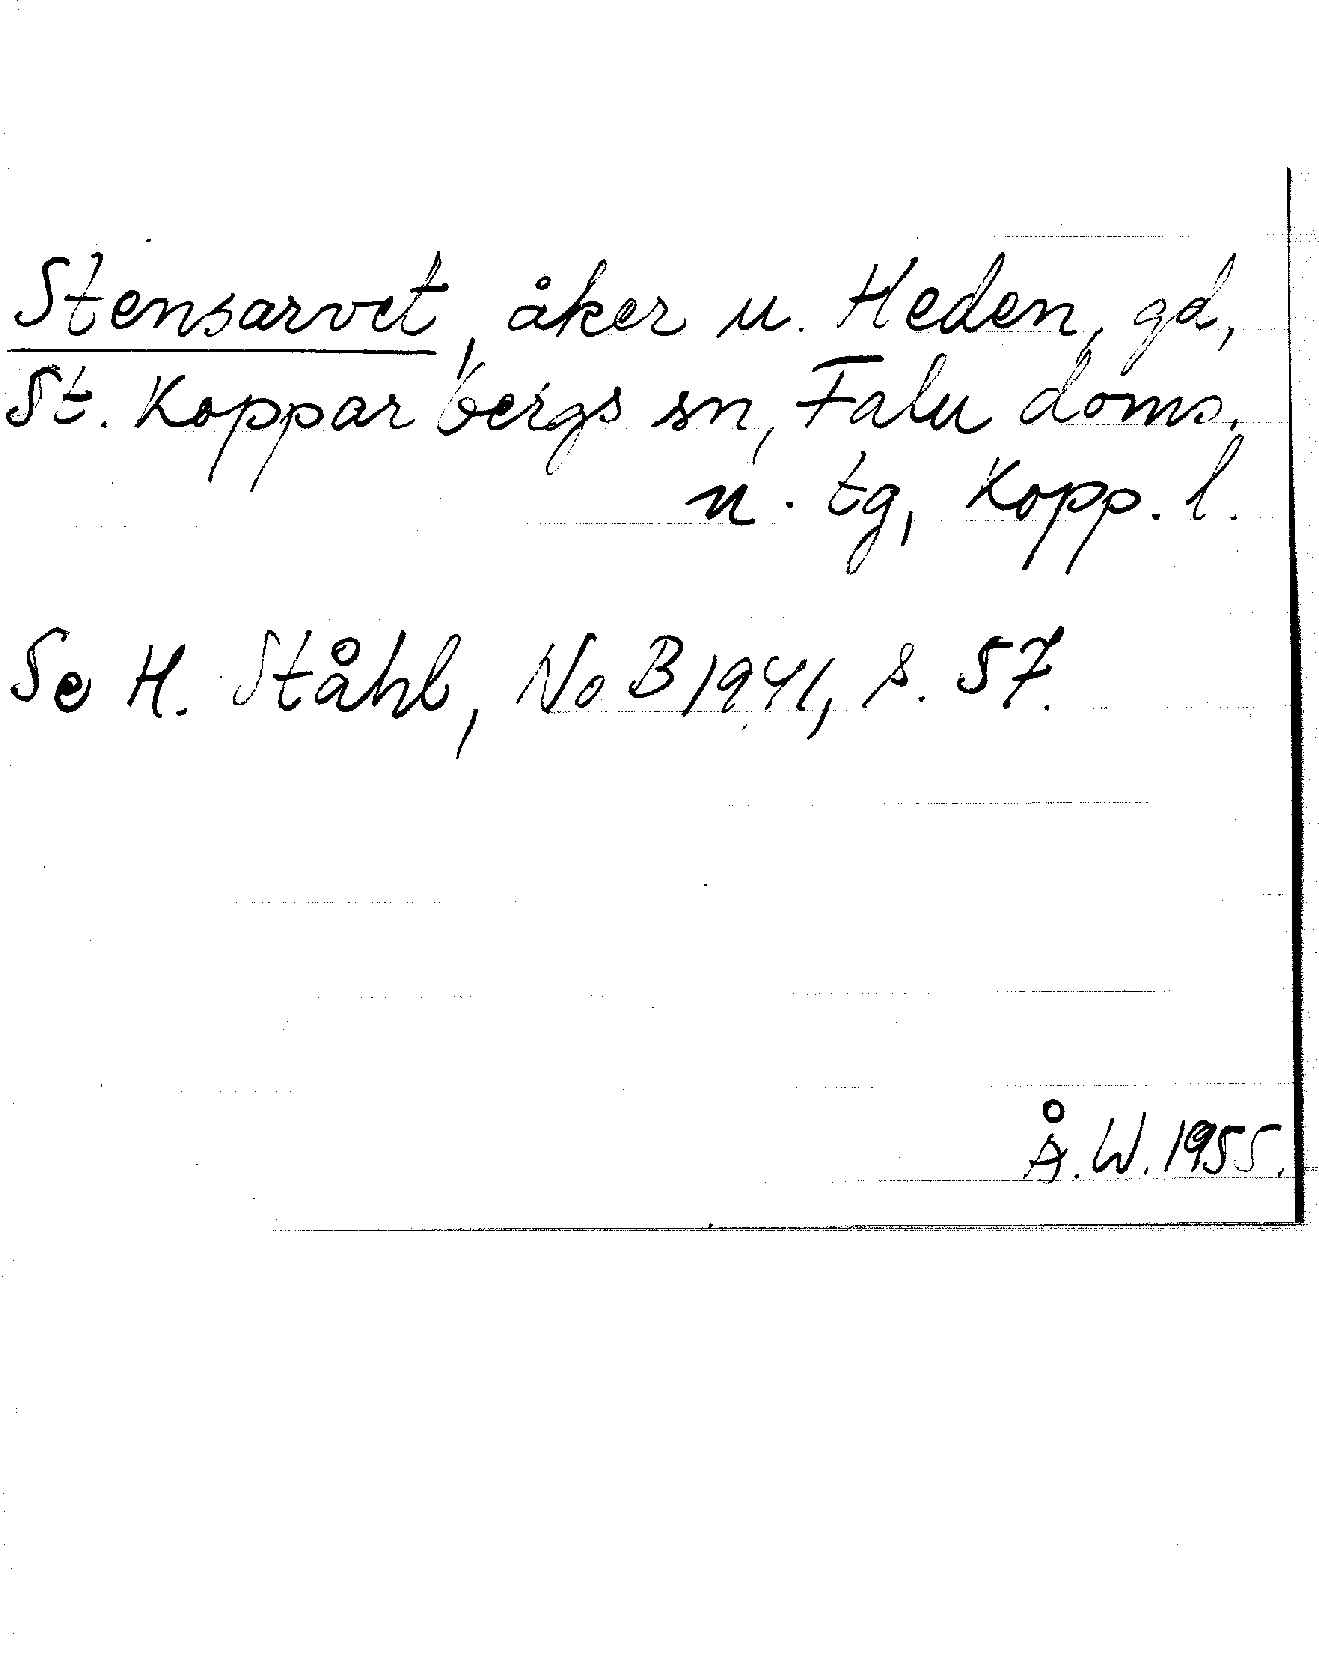 Stensarvet, åker u. Heden, gd,
St. Kopparbergs sn, Falu doms.
n. tg, Kopp. l.
Se H. Ståhl, NoB 1941, s. 57.
Å. W. 1955.